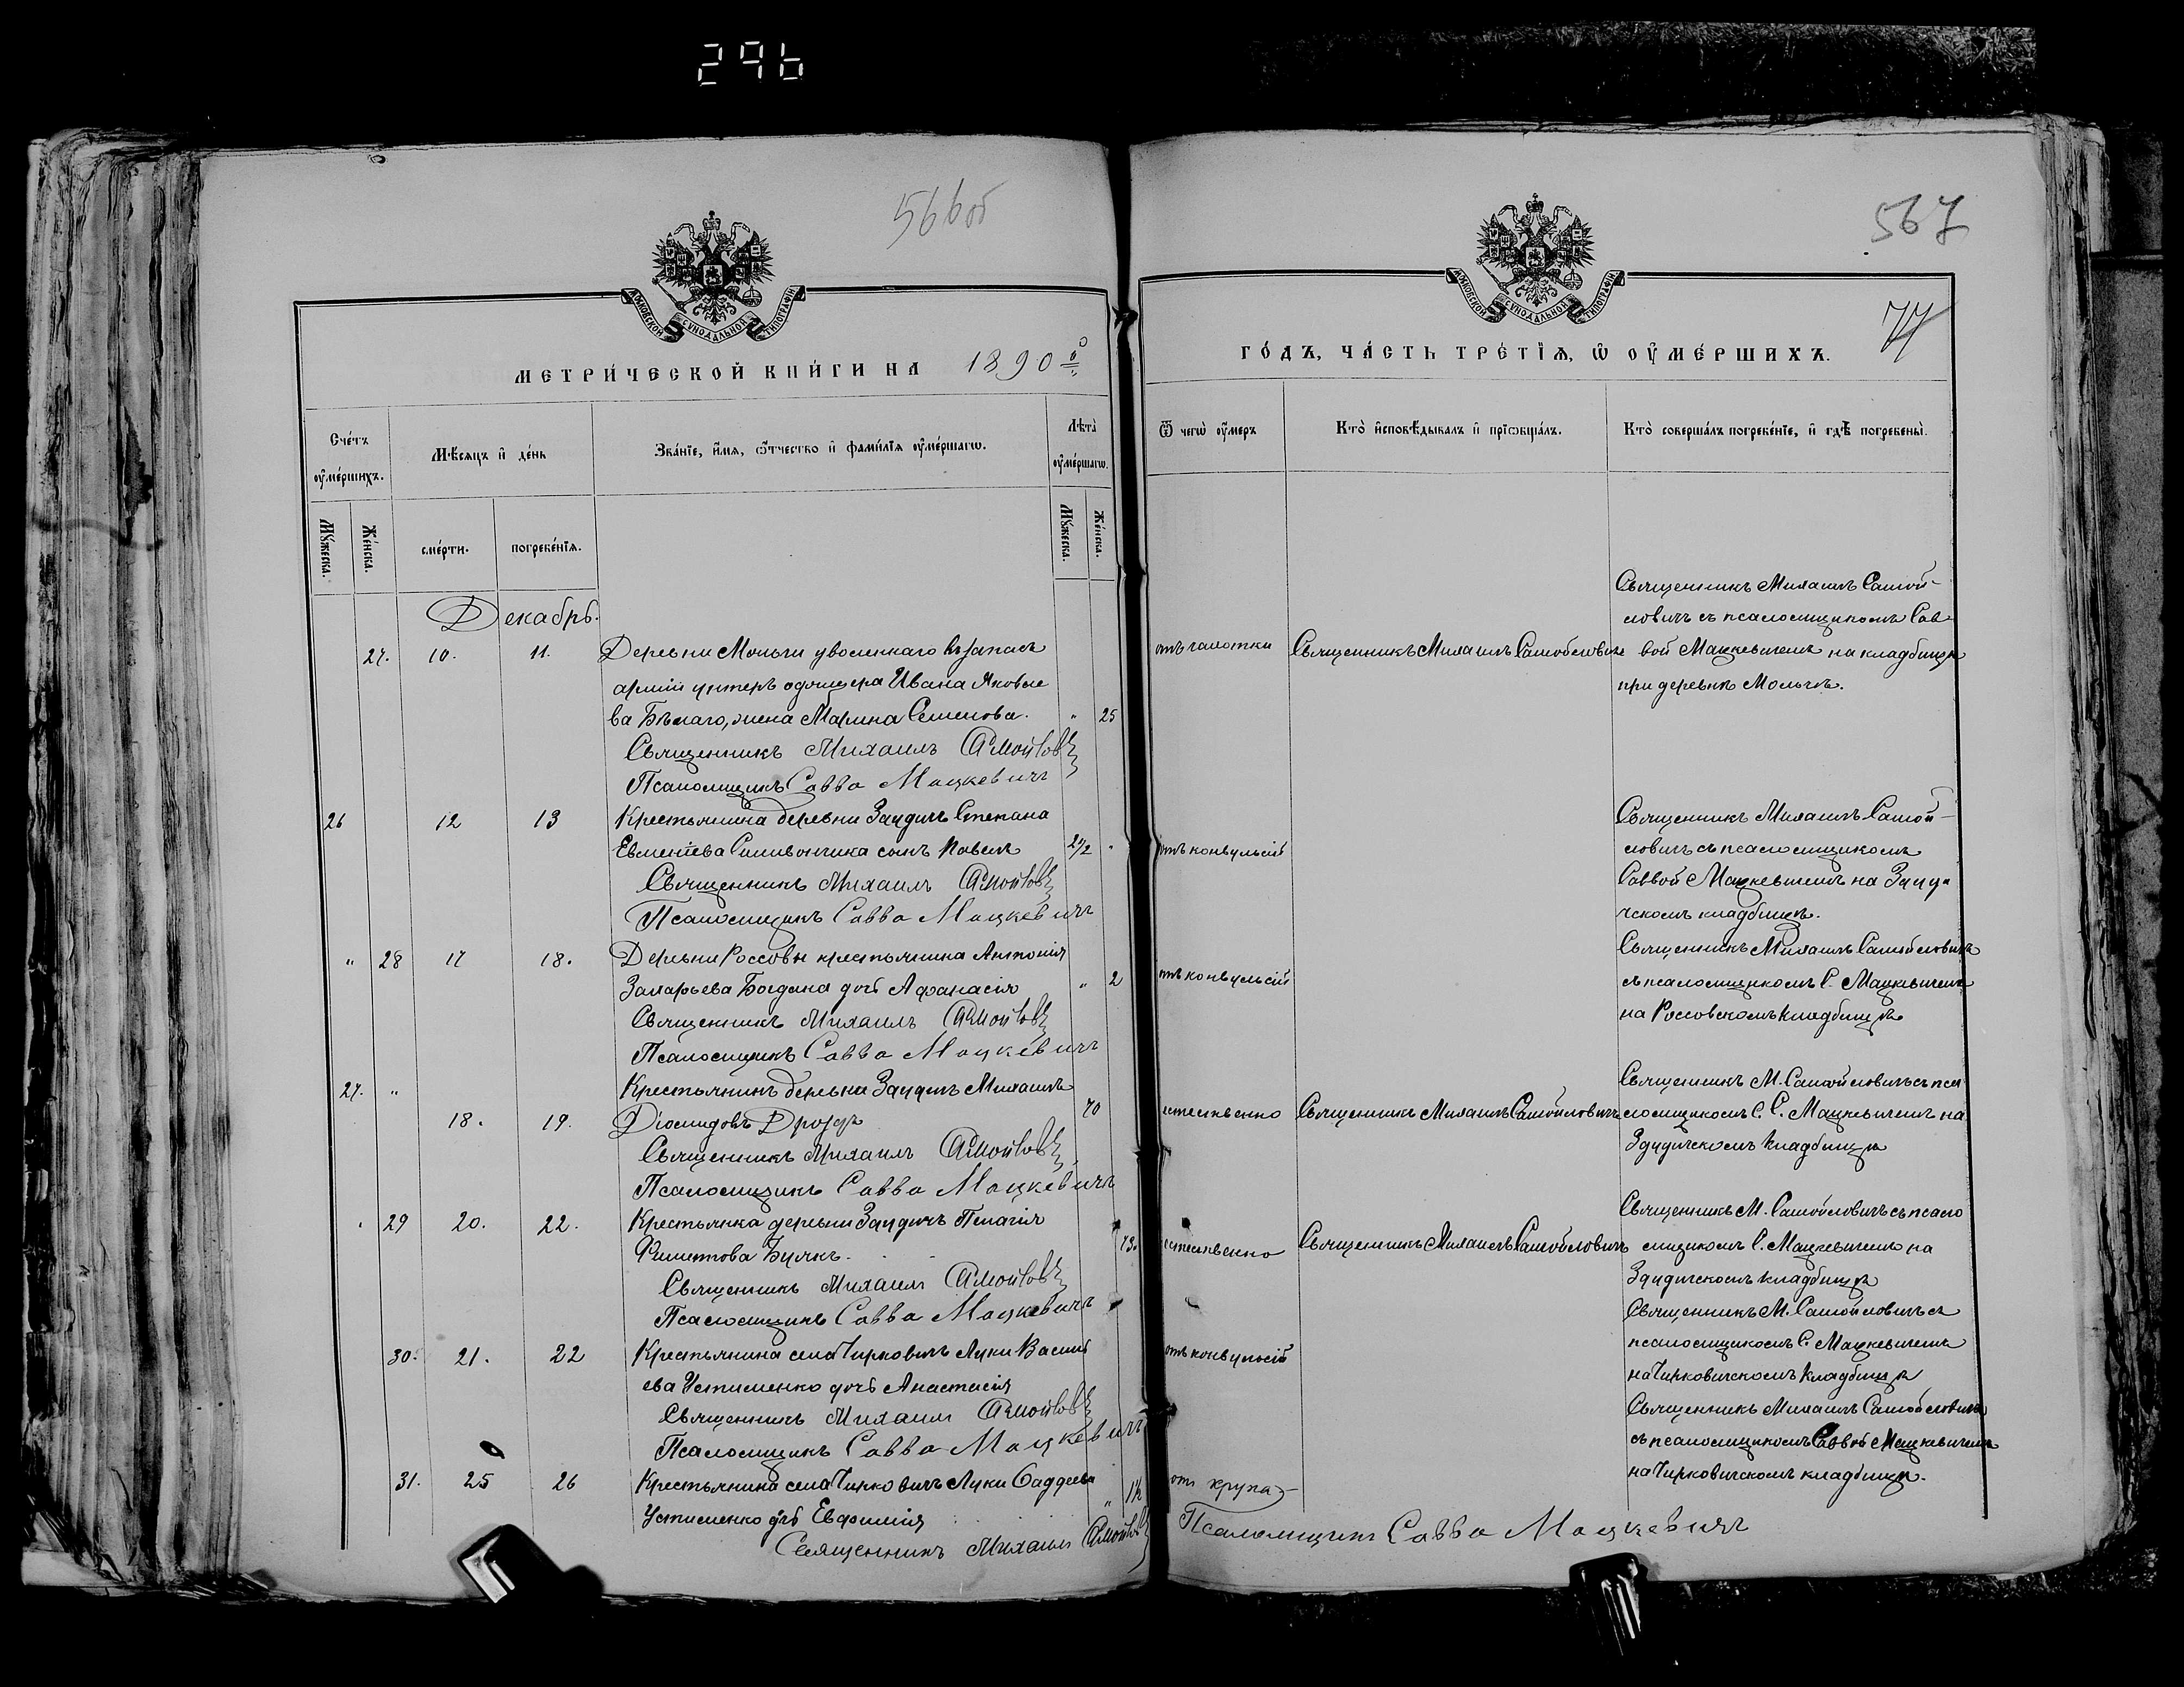 296
566об
567
77
МОСКОВСКОЙ СѴНОДАЛЬНОЙ ТИПОГРАФІИ
МОСКОВСКОЙ СѴНОДАЛЬНОЙ ТИПОГРАФІИ
МЕТРИ́ЧЕСКОЙ КНИ́ГИ НА 1890й
ГО́ДЪ, ЧА́СТЬ ТРЕ́ТІѦ, Ѿ ОУ҆МЕ́РШИХЪ.
Сче́тъ оу҆ме́ршихъ.
Мѣ́сяцъ и҆ де́нь
Зва́нїе, и҆́мѧ, ѻ҆́тчество и҆ фами́лїѧ оу҆ме́ршагѡ.
Лѣта̀ оу҆ме́ршагѡ.
Ѿ чегѡ̀ оу҆́меръ
Кто̀ и҆сповѣ́дывалъ и҆ прїѡбща́лъ.
Кто̀ соверша́лъ погребе́нїе, и҆ гдѣ̀ погребены̀.
Мꙋ́жеска.
Же́нска.
сме́рти.
погребе́нїѧ.
Мꙋ́жеска.
Же́нска.
Декабрь.
27. 10. 11. Деревни Мольчи уволеннаго въ запасъ
арміи унтеръ офицера Ивана Яковле
ва Бѣлаго, жена Марина Семенова. " 25
Священникъ Михаилъ Самойлов
Псаломщикъ Савва Мацкевичъ
отъ чахотки
Священникъ Михаилъ Самойловичъ
Священникъ Михаилъ Самой-
ловичъ съ псаломщикомъ Сав
вой Мацкевичемъ на кладбищѣ
при деревнѣ Мольчѣ.
26 12 13 Крестьянина деревни Здудичъ Степана
Евменіева Силивончика сынъ Павелъ 2 1/2 "
Священникъ Михаилъ Самойлов
Псаломщикъ Савва Мацкевичъ
отъ конвульсій
Священникъ Михаилъ Самой-
ловичъ съ псаломщикомъ
Саввой Мацкевичемъ на Здуди
чскомъ кладбищѣ.
" 28 17 18. Деревни Россовы крестьянина Антонія
Захарьева Богдана дочь Афанасія " 2
Священникъ Михаилъ Самойлов
Псаломщикъ Савва Мацкевичъ
отъ конвульсій
Священникъ Михаилъ Самойловичъ
съ псаломщикомъ С. Мацкевичемъ
на Россовскомъ кладбищѣ
27. " Крестьянинъ деревни Здудичъ Михаилъ
18. 19. Діомидовъ Дроздъ 70
Священникъ Михаилъ Самойлов
Псаломщикъ Савва Мацкевичъ
естественно
Священникъ Михаилъ Самойловичъ
Священникъ М. Самойловичъ съ пса
ломщикомъ С. С. Мацкевичемъ на
Здудичскомъ кладбищѣ
" 29 20. 22. Крестьянка деревни Здудичъ Пелагія
Филиппова Булкъ. 73.
Священникъ Михаилъ Самойлов
Псаломщикъ Савва Мацкевичъ
естественно
Священникъ Михаилъ Самойловичъ
Священникъ М. Самойловичъ съ псало
мщикомъ С. Мацкевичемъ на
Здудичскомъ кладбищѣ
30. 21. 22 Крестьянина села Чирковичъ Луки Василь
ева Устименко дочь Анастасія
Священникъ Михаилъ Самойлов
Псаломщикъ Савва Мацкевичъ
отъ конвульсій
Священникъ М. Самойловичъ съ
псаломщикомъ С. Мацкевичемъ
на Чирковичскомъ кладбищѣ
31. 25 26 Крестьянина села Чирковичъ Луки Фаддеева
Устименко дочь Евфимія " 1 1/2
Священникъ Михаилъ Самойлов
отъ крупа
Псаломщикъ Савва Мацкевичъ
Священникъ Михаилъ Самойловичъ
съ псаломщикомъ Саввой Мацкевичемъ
на Чирковичскомъ кладбищѣ.